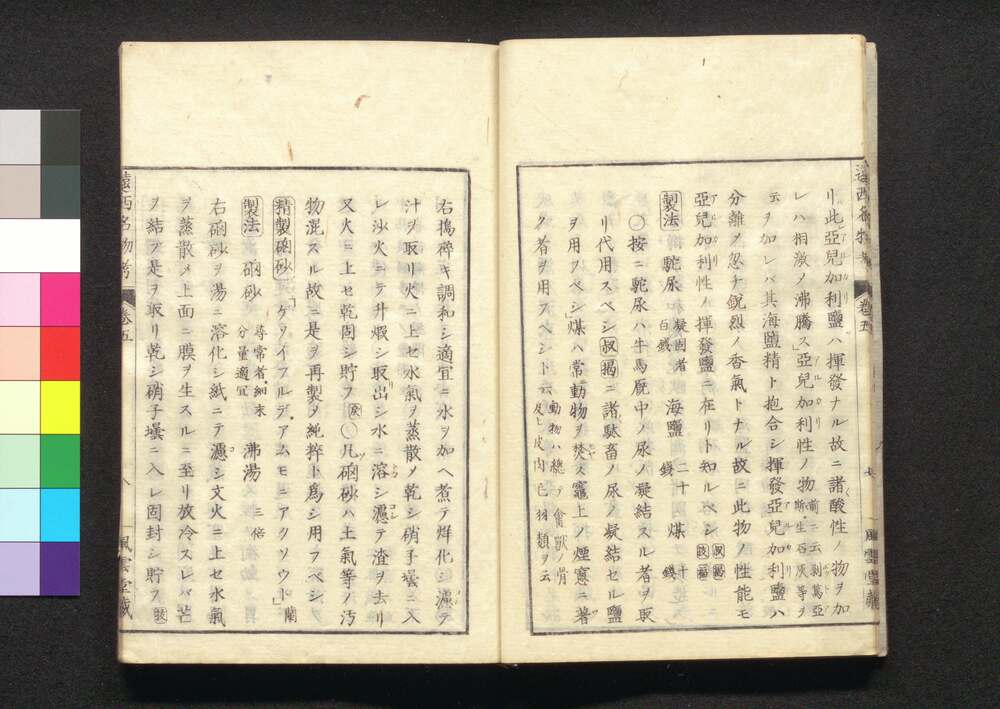 リ此亞兒加利鹽ハ揮發ナル故ニ諸酸性ノ物ヲ加
レハ相激ノ沸騰ス亞兒加利性ノ物前ニ云剥篤亞斯生石灰等ヲ
云ヲ加レバ其海鹽精ト抱合シ揮發亞兒加利鹽ハ
分離メ忽チ鋭烈ノ香氣トナル故ニ此物ノ性能モ
亞兒加利性ノ揮發鹽ニ在リト知ルベシ
製法 駝尿 凝固者百錢 海鹽 二十錢 煤 十錢
〇按ニ駝尿ハ牛馬廐中ノ尿ノ凝結スル者ヲ取
リ代用スベシ叔掲ニ諸駄畜ノ尿ノ凝結セル鹽
ヲ用フベシ煤ハ常動物ヲ焚ス竈上ノ煙窓ニ著
ク者ヲ用フベシト云 動物ハ總テ禽獸ノ骨及ヒ皮肉毛羽類ヲ云
右搗碎キ調和シ適宜ニ水ヲ加ヘ煮テ烊化シ濾テ
汁ヲ取リ火ニ上セ水氣ヲ蒸散メ乾シ硝子壜ニ入
レ沙火ニテ升煆シ取出シ水ニ溶シ濾テ渣ヲ去リ
又火ニ上セ乾固シ貯フ 〇凡硇砂ハ土氣等ノ汚
物混スル故ニ是ヲ再製ヲ純粹ト爲シ用フベシ
精製硇砂 「ゲソイフルデ、アムモニアクソウト」蘭
製法 硇砂 尋常者細末分量適宜 沸湯 三倍
右硇砂ヲ湯ニ溶化シ紙ニテ濾シ文火ニ上セ水氣
ヲ蒸散メ上面ニ膜ヲ生スルニ至リ放冷スレバ芒
ヲ結フ是ヲ取リ乾シ硝子壜ニ入レ固封シ貯フ
遠西名物考 卷五 八 風雲堂藏